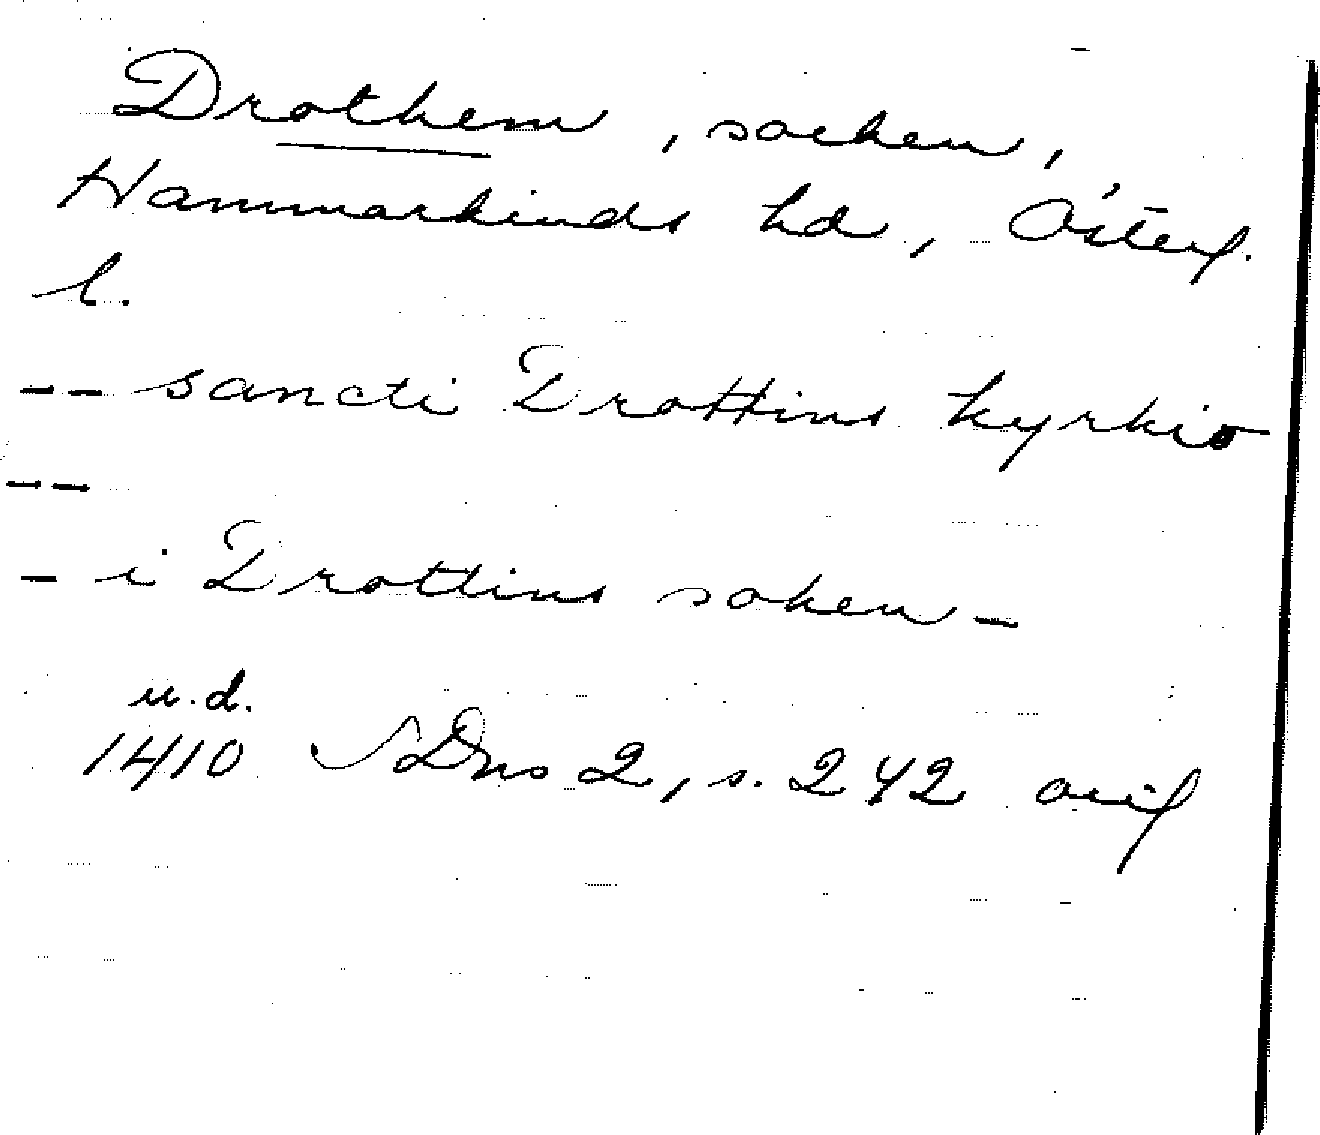 Drothem, socken,
Hammarkinds hd, Österg.
l.
-- sancti Drottins kyrkio
--
- i Drottins soken -
u.d.
1410 SDns 2, s. 242 orig